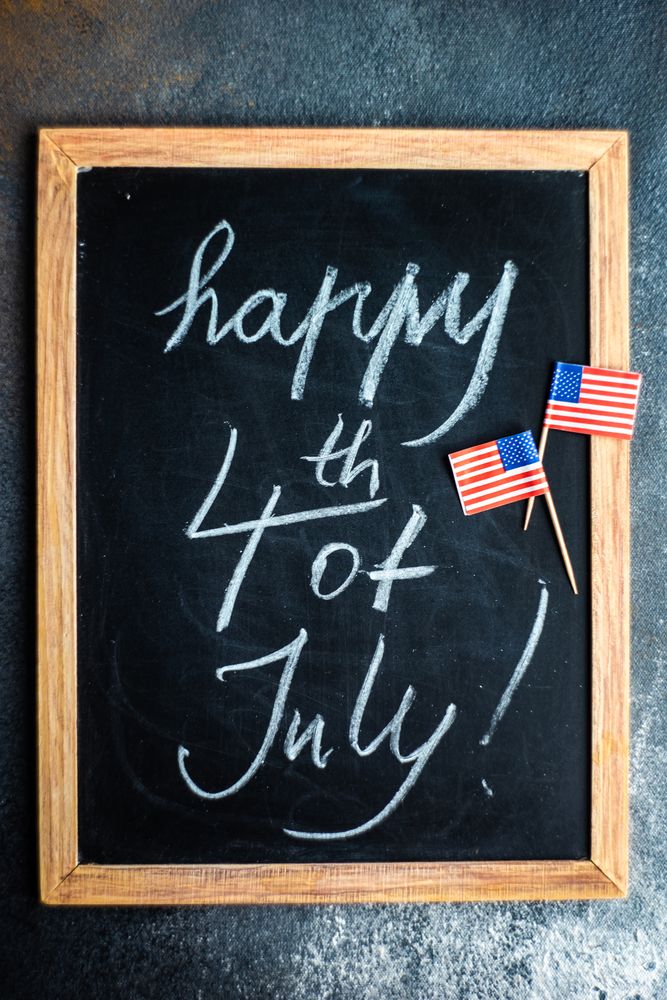 happy
4th of
July!